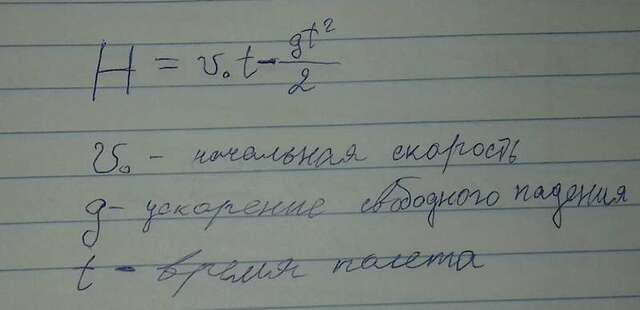 H = v₀t - gt²/2
v₀ - начальная скорость
g - ускорение свободного падения
t - время полета